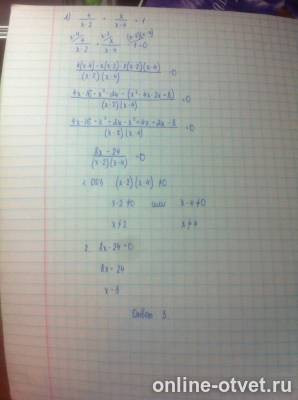 1) 4/(x-2) + x/(x-4) = 1
x-4/ 4/(x-2) x-2/ x/(x-4) (x-2)(x-4)/ 1 = 0
4(x-4) - x(x-2) - 1(x-2)(x-4) / (x-2)(x-4) = 0
4x-16 - x² -2x - (x² -4x-2x-8) / (x-2)(x-4) = 0
4x-16 - x² +2x - x² +4x + 2x - 8 / (x-2)(x-4) = 0
8x - 24 / (x-2)(x-4) = 0
1. ОДЗ (x-2)(x-4) ≠ 0
x-2 ≠ 0 или x-4 ≠ 0
x ≠ 2 x ≠ 4
2. 8x - 24 = 0
8x = 24
x = 3
Ответ 3.
online-otvet.ru